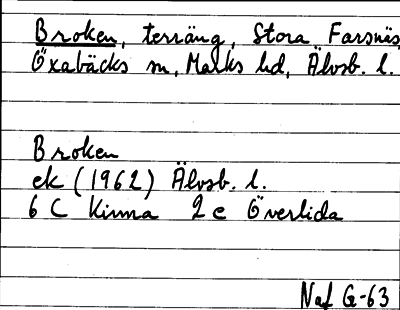 Broken, terräng, Stora Farsnäs,
Öxabäcks sn, Marks hd, Älvsb. l.
Broken
ek (1962) Älvsb. l.
6 C Kinna 2 e Överlida
Naf G-63